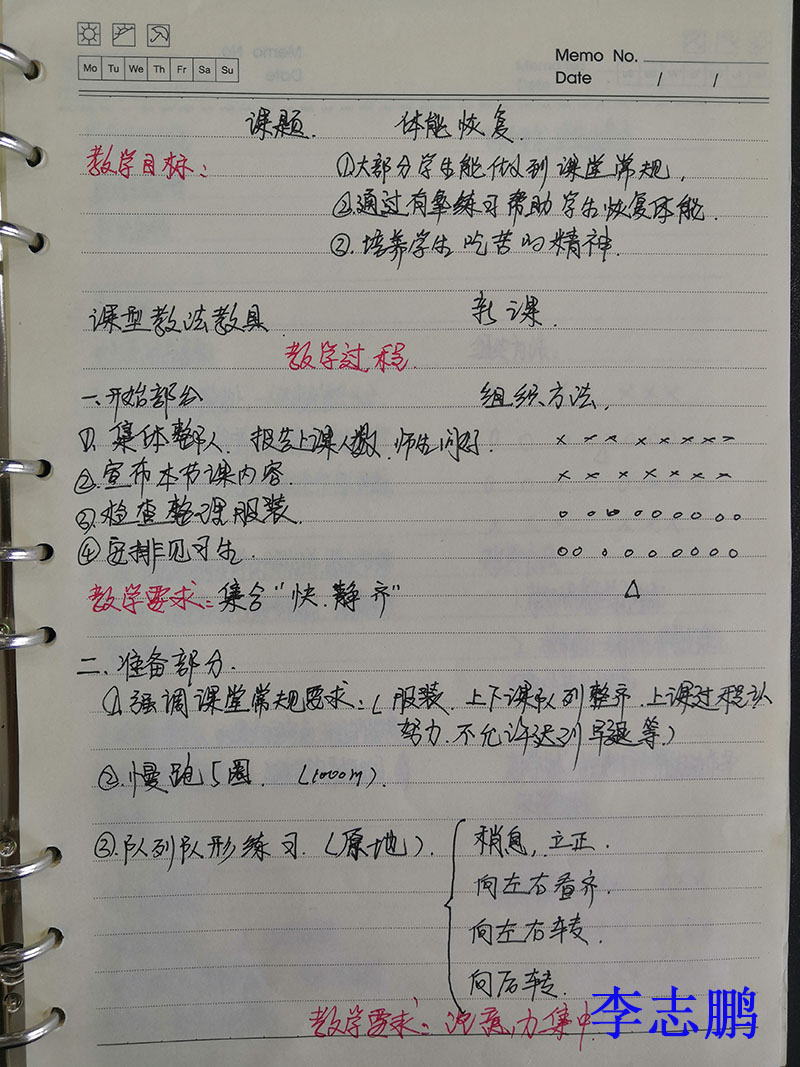 Memo No.
Mo Tu We Th Fr Sa Su
Date / /
课题. 体能恢复.
教学目标:
①大部分学生能做到课堂常规,
②通过有氧练习帮助学生恢复体能.
②.培养学生吃苦的精神.
课型教法教具 新课.
教学过程.
一、开始部分 组织方法,
①.集体整队. 报告上课人数.师生问好.
②.宣布本节课内容.
③.检查整理服装.
④安排见习生.
教学要求:集合“快.静 齐”
二、准备部分.
①.强调课堂常规要求:(服装.上下课队列整齐.上课过程认
努力.不允许迟到早退等)
②.慢跑5圈. (1000m).
③.队列队形练习.(原地).
稍息,立正.
向左右看齐.
向左右转.
向后转.
教学要求:注意力集中
李志鹏